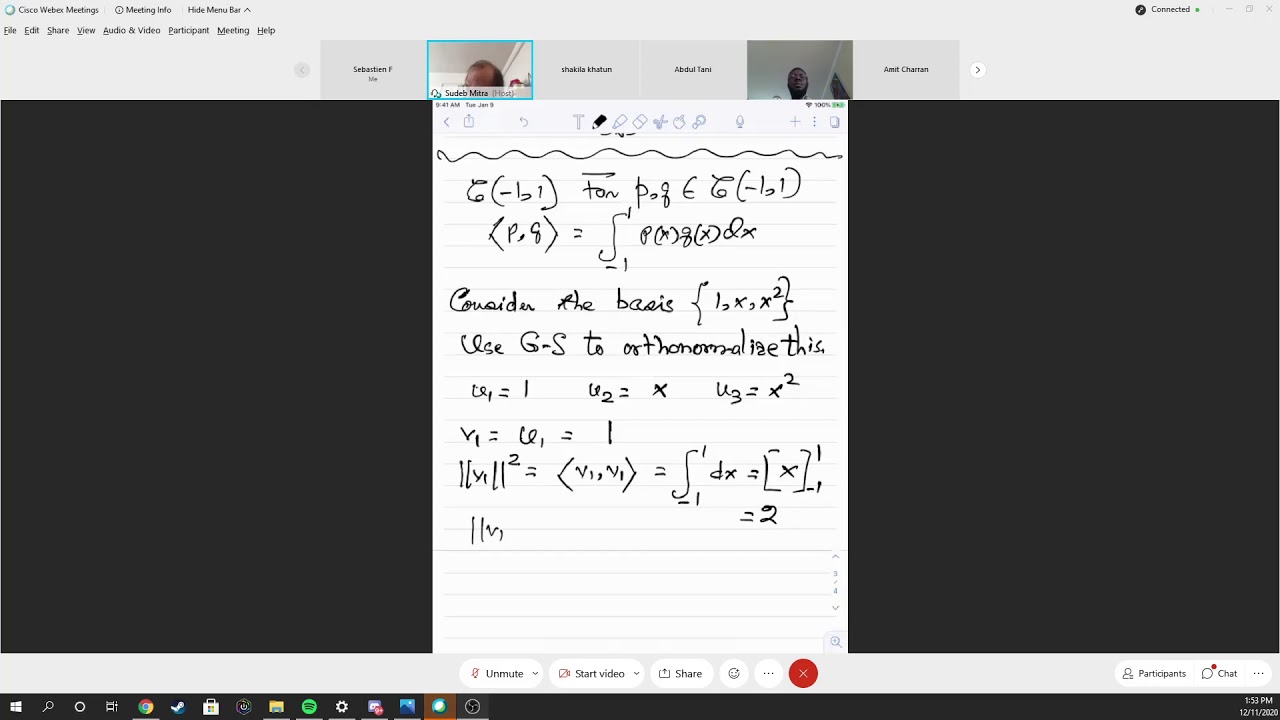 Cisco Webex Meetings Meeting Info Hide Menu Bar Connected
File Edit Share View Audio & Video Participant Meeting Help
Sebastien F
Me
Sudeb Mitra (Host)
shakila khatun
Abdul Tani
Amit Charran
9:41 AM Tue Jan 9 100%
𝒞(-1,1) For p,q ∈ 𝒞(-1,1)
⟨p,q⟩ = ∫₋₁¹ p(x)q(x)dx
Consider the basis {1,x,x²}
Use G-S to orthonormalize this.
u₁ = 1 u₂ = x u₃ = x²
v₁ = u₁ = 1
||v₁||² = ⟨v₁,v₁⟩ = ∫₋₁¹ dx = [x]₋₁¹
= 2
||v₁
3
/
4
Unmute Start video Share Participants Chat
1:53 PM
12/11/2020